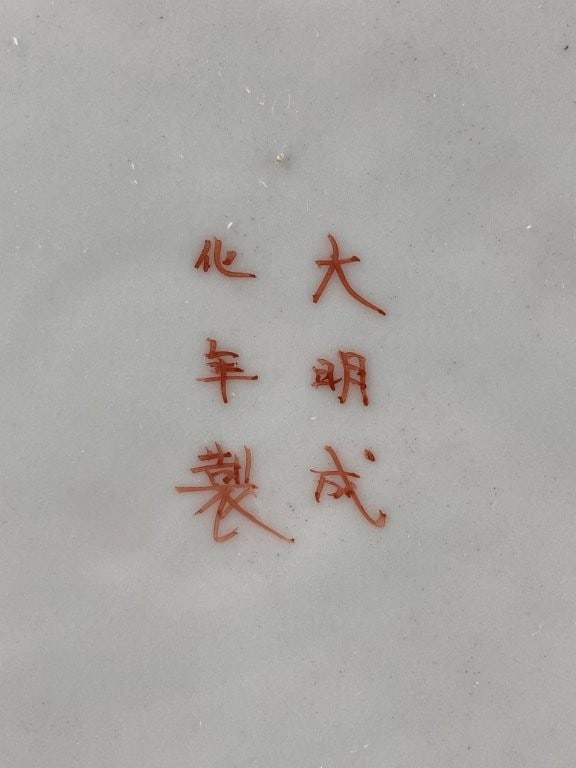 大明成
化年製